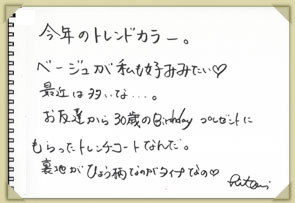 今年のトレンドカラー。
ベージュが私も好みみたい♡
最近は多いな…。
お友達から30歳のBirthdayプレゼントに
もらったトレンチコートなんだ。
裏地がひょう柄なのがタイプなの♡